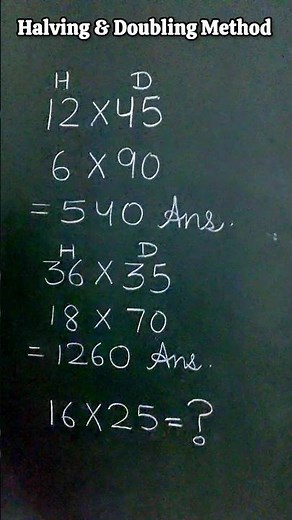 Halving & Doubling Method
H D
12×45
6×90
=540 Ans.
H D
36×35
18×70
=1260 Ans.
16×25=?